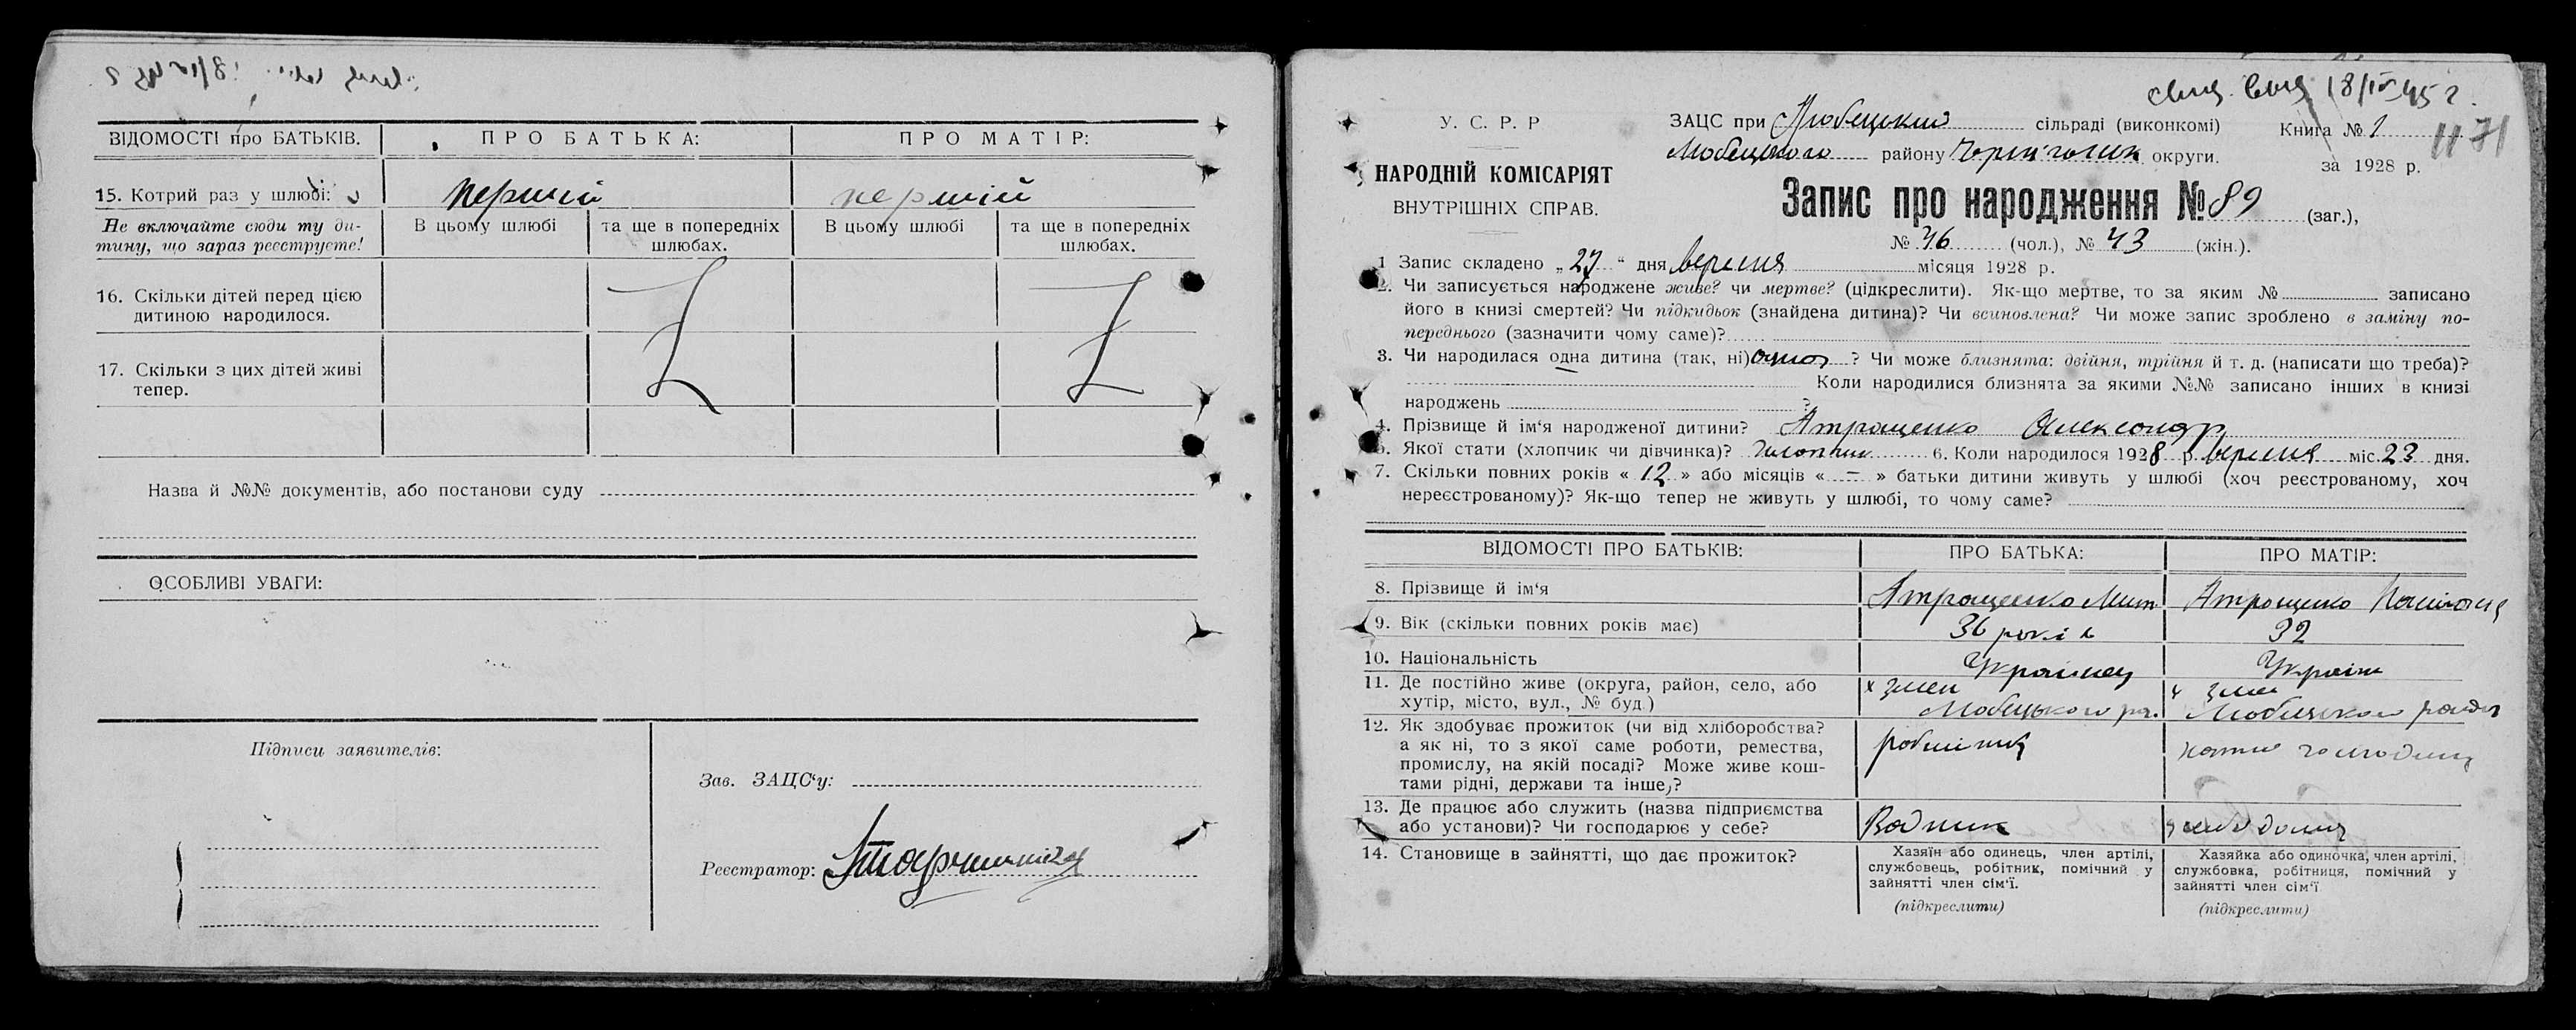 ВІДОМОСТІ про БАТЬКІВ. ПРО БАТЬКА: ПРО МАТІР:
15. Котрий раз у шлюбі: перший перший
Не включайте сюди ту ди- В цьому шлюбі та ще в попередніх В цьому шлюбі та ще в попередніх
тину, що зараз реєструєте! шлюбах. шлюбах.
16. Скільки дітей перед цією
дитиною народилося.
17. Скільки з цих дітей живі
тепер.
Назва й №№ документів, або постанови суду
ОСОБЛИВІ УВАГИ:
Підписи заявителів:
Зав. ЗАЦС'у:
Реєстратор:
18/IV 45 г.
У. С. Р. Р
НАРОДНІЙ КОМІСАРІЯТ
ВНУТРІШНІХ СПРАВ.
ЗАЦС при Любецькій сільраді (виконкомі)
Любецького району округи.
Книга № 1
за 1928 р.
Запис про народження № 89 (заг.),
№ 46 (чол.), № 43 (жін.).
1 Запис складено „27“ дня вересня місяця 1928 р.
2. Чи записується народжене живе? чи мертве? (цідкреслити). Як-що мертве, то за яким № записано
його в книзі смертей? Чи підкидьок (знайдена дитина)? Чи всиновлена? Чи може запис зроблено в заміну по-
переднього (зазначити чому саме)?
3. Чи народилася одна дитина (так, ні) одна ? Чи може близнята: двійня, трійня й т. д. (написати що треба)?
Коли народилися близнята за якими №№ записано інших в книзі
народжень ?
4. Прізвище й ім'я народженої дитини? Атрощенко Александр
5. Якої стати (хлопчик чи дівчинка)? хлопчик 6. Коли народилося 1928 р. вересня міс. 23 дня.
7. Скільки повних років « 12 » або місяців « — » батьки дитини живуть у шлюбі (хоч реєстрованому, хоч
нереєстрованому)? Як-що тепер не живуть у шлюбі, то чому саме?
ВІДОМОСТІ ПРО БАТЬКІВ: ПРО БАТЬКА: ПРО МАТІР:
8. Прізвище й ім'я Атрощенко Атрощенко
9. Вік (скільки повних років має) 36 років 32
10. Національність Українец Україн
11. Де постійно живе (округа, район, село, або
хутір, місто, вул., № буд.) Любецького ра. Любецького района
12. Як здобуває прожиток (чи від хліборобства?
а як ні, то з якої саме роботи, ремества,
промислу, на якій посаді? Може живе кош-
тами рідні, держави та інше,? робітник
13. Де працює або служить (назва підприємства
або установи)? Чи господарює у себе? Водник
14. Становище в зайнятті, що дає прожиток? Хазяїн або одинець, член артілі,
службовець, робітник, помічний у
зайнятті член сім'ї.
(підкреслити)
Хазяйка або одиночка, член артілі,
службовка, робітниця, помічний у
зайнятті член сім'ї
(підкреслити)